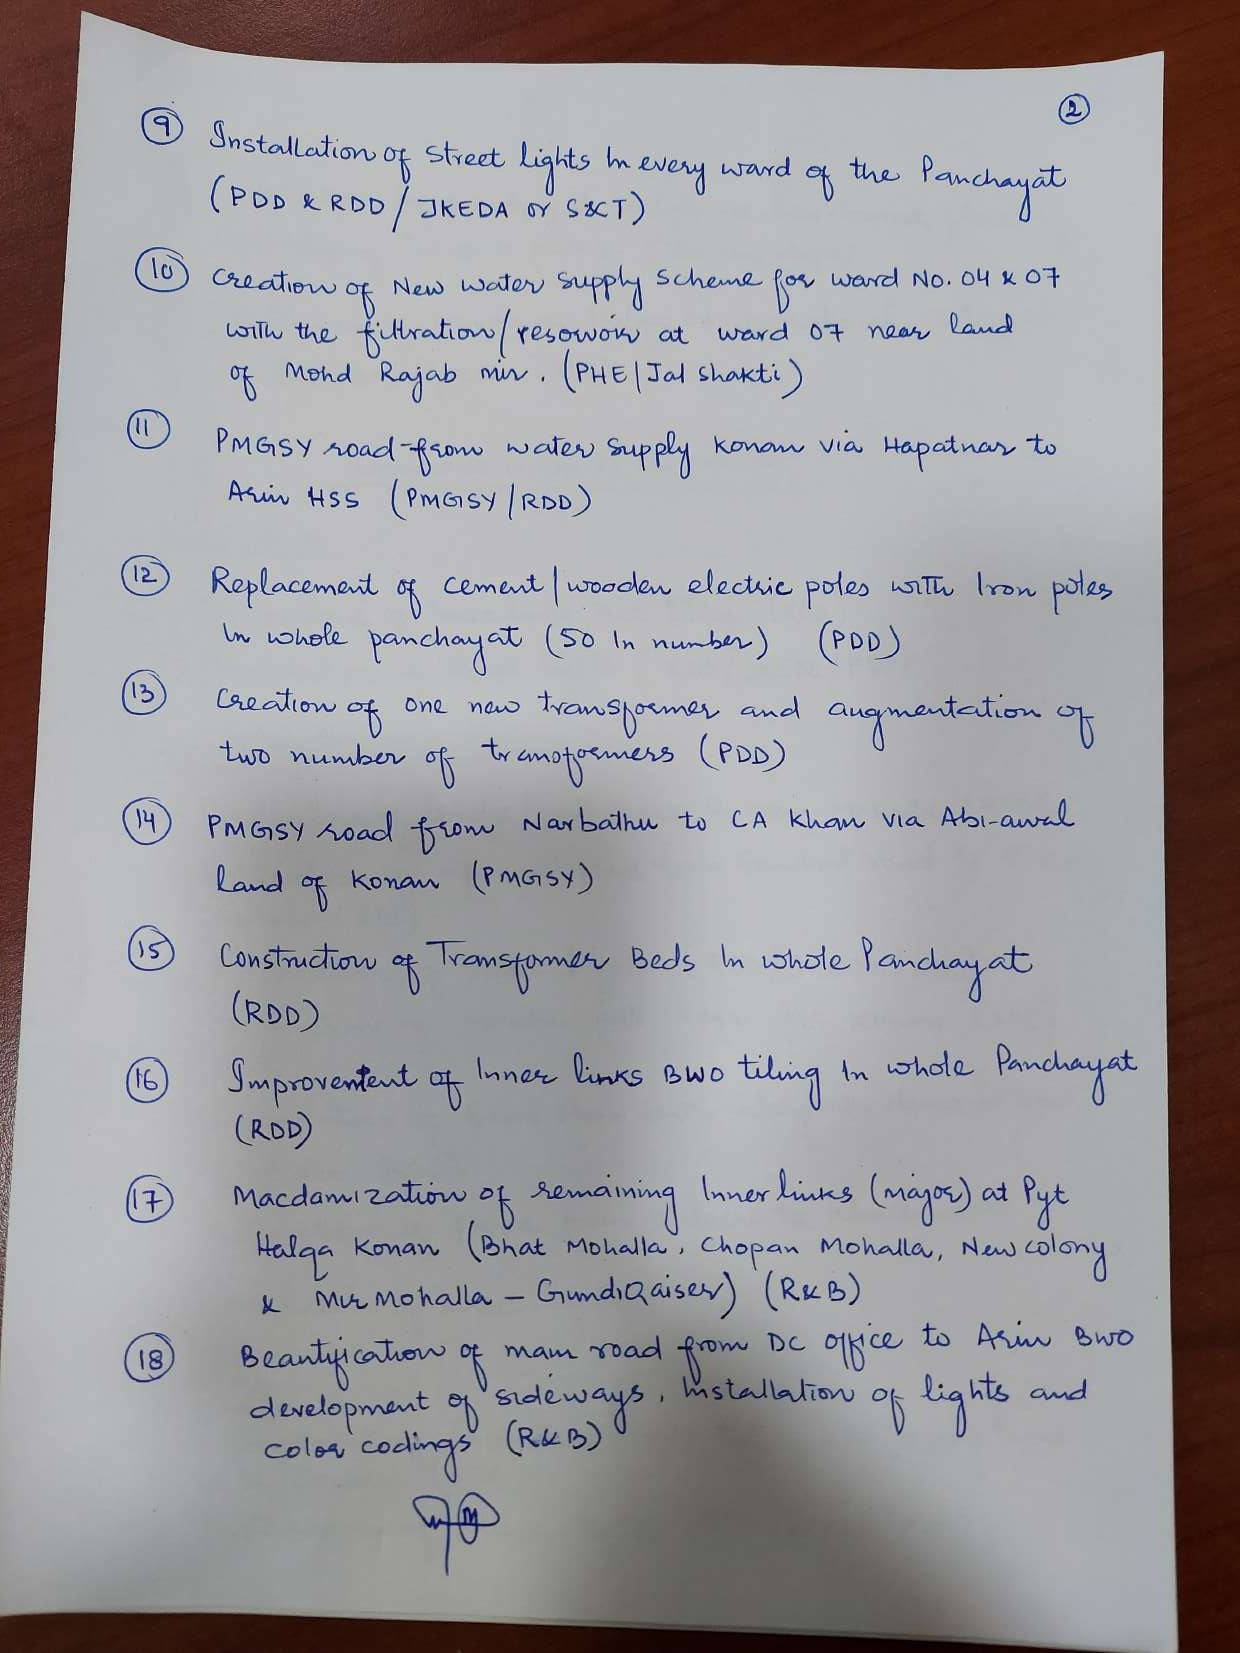 2
9 Installation of Street lights In every ward of the Panchayat
(PDD & RDD/JKEDA or S&T)
10 Creation of New water Supply Scheme for ward No. 04 & 07
with the filtration/resowoir at ward 07 near land
of Mohd Rajab mir. (PHE|Jal Shakti)
11 PMGSY road from water Supply Konan via Hapatnar to
Arin HSS (PMGSY/RDD)
12 Replacement of cement/wooden electric poles with Iron poles
In whole panchayat (50 In number) (PDD)
13 Creation of one new transformer and augmentation of
two number of transformers (PDD)
14 PMGSY road from Narbathu to CA Khan via Abi-awal
land of Konan (PMGSY)
15 Construction of Transformer Beds In whole Panchayat
(RDD)
16 Improvement of Inner links BWO tiling In whole Panchayat
(RDD)
17 Macdamization of remaining Inner links (major) at Pyt
Halqa Konan (Bhat Mohalla, Chopan Mohalla, New colony
& Mir Mohalla - GundiQaiser) (R&B)
18 Beautification of main road from DC office to Arin BWO
development of sideways, Installation of lights and
color codings (R&B)